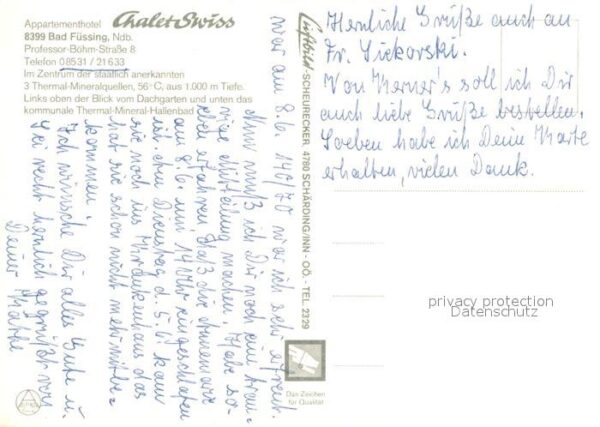 Appartementhotel Chalet Swiss
8399 Bad Füssing, Ndb.
Professor-Böhm-Straße 8
Telefon 0 85 31 / 21 6 33
Im Zentrum der staatlich anerkannten
3 Thermal-Mineralquellen, 56°C, aus 1.000 m Tiefe.
Links oben der Blick vom Dachgarten und unten das
kommunale Thermal-Mineral-Hallenbad
Luftbild-SCHEURECKER, 4780 SCHÄRDING/INN - OÖ. - TEL. 2329
war am 8.6. war ich sehr erfreut.
Nun muß ich Dir noch eine trau-
rige Mitteilung machen. Habe so-
eben erfahren, daß die
am 8.6. um 14 Uhr eingeschlafen
ist. Am Dienstag d. 5.6. kam
sie noch ins Krankenhaus das
hat sie schon nicht mehr mitbe-
kommen.
Ich wünsche Dir alles Gute u.
sei recht herzlich gegrüßt von
Deiner Käthe
Herzliche Grüße auch an
Fr.
Von Werner's soll ich Dir
auch liebe Grüße bestellen.
Soeben habe ich Deine Karte
erhalten, vielen Dank.
privacy protection
Datenschutz
Das Zeichen
für Qualität